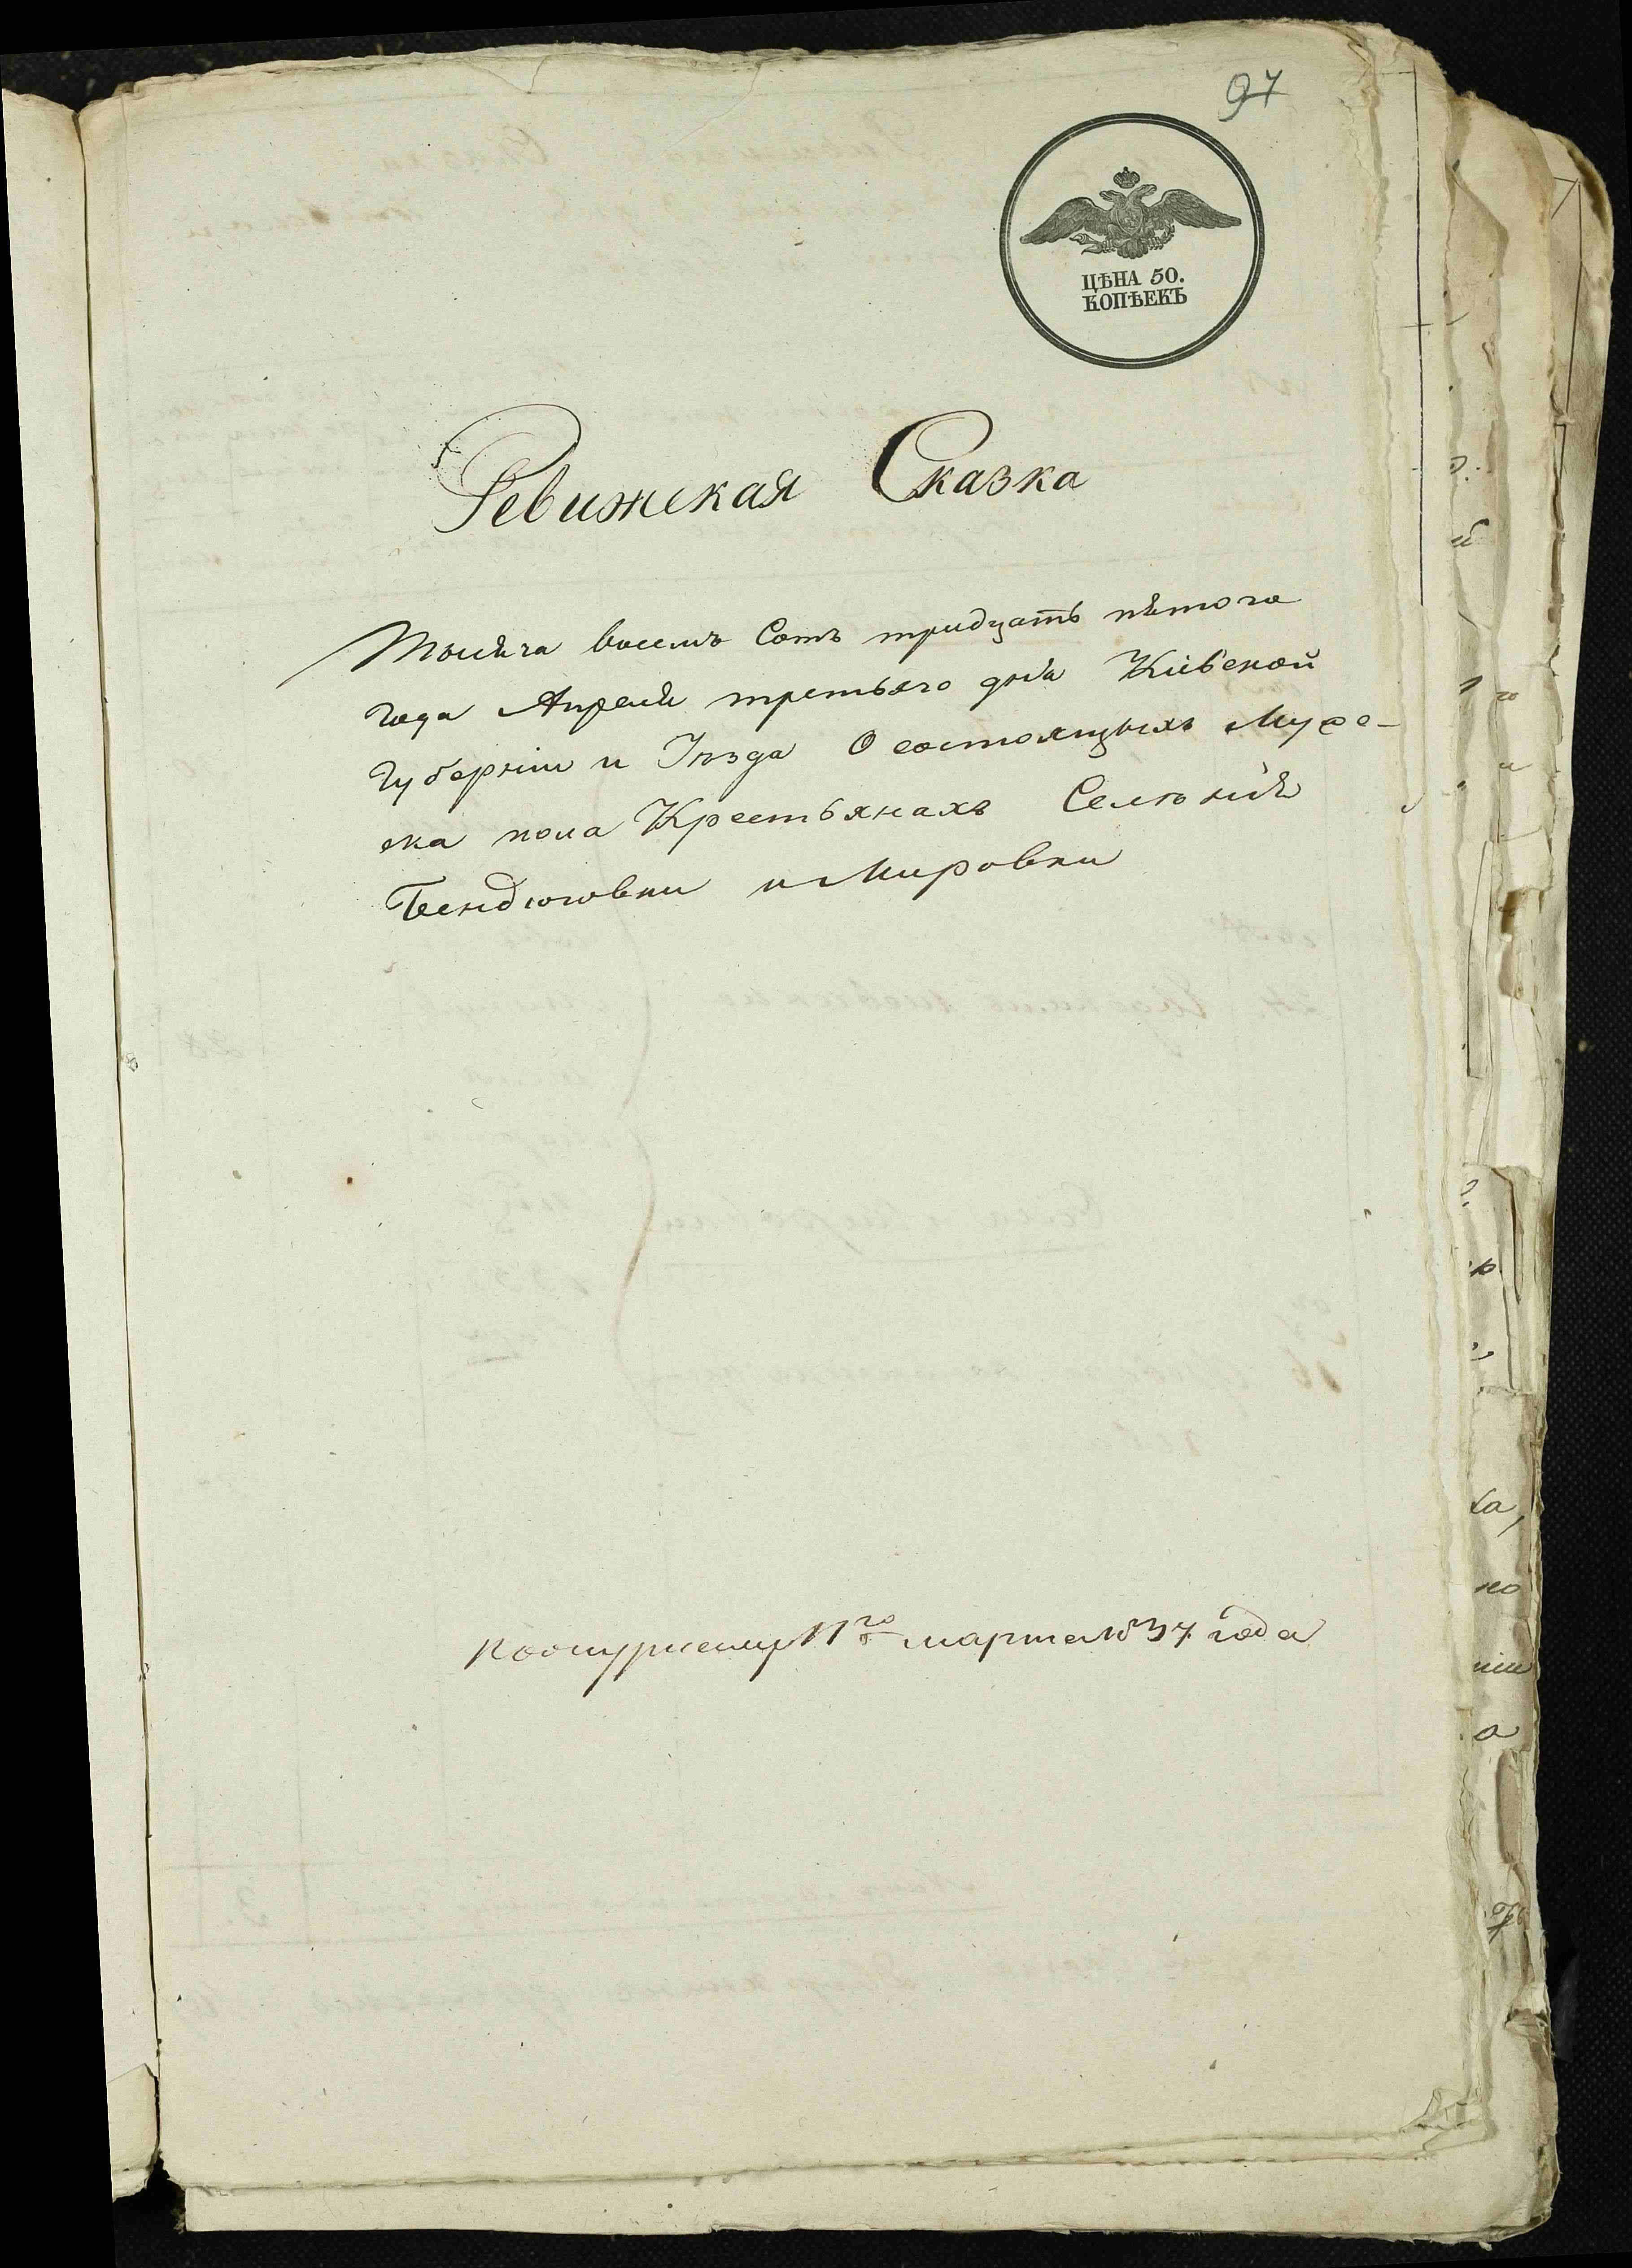 97
ЦѢНА 50.
КОПѢЕКЪ
Ревижская Сказка
Тысяча восемъ Сотъ тридцать пятого
года Апреля третьяго дня Кіевской
Губерніи и Уѣзда О состоящихъ Муже-
ска пола Крестьянахъ Селеній
Бендюговки и Мировки
11го марта 1837 года